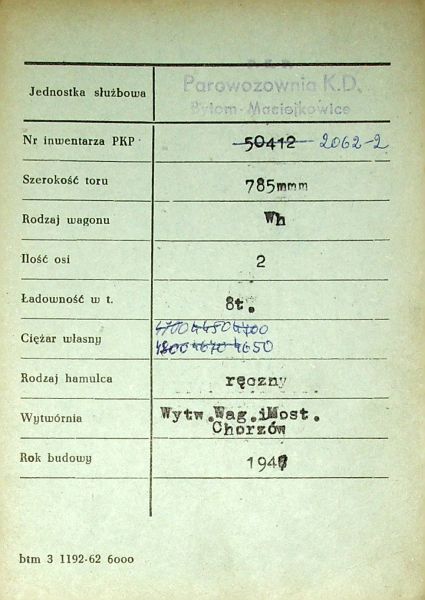 P.K.P.
Jednostka służbowa Parowozownia K.D.
Bytom-Maciejkowice
Nr inwentarza PKP 50412 2062-2
Szerokość toru 785mmm
Rodzaj wagonu Wh
Ilość osi 2
Ładowność w t. 8t.
4700 4450 4400
Ciężar własny 4800 4670 4650
Rodzaj hamulca ręczny
Wytwórnia Wytw.Wag.iMost.
Chorzów
Rok budowy 1947
btm 3 1192-62 6000